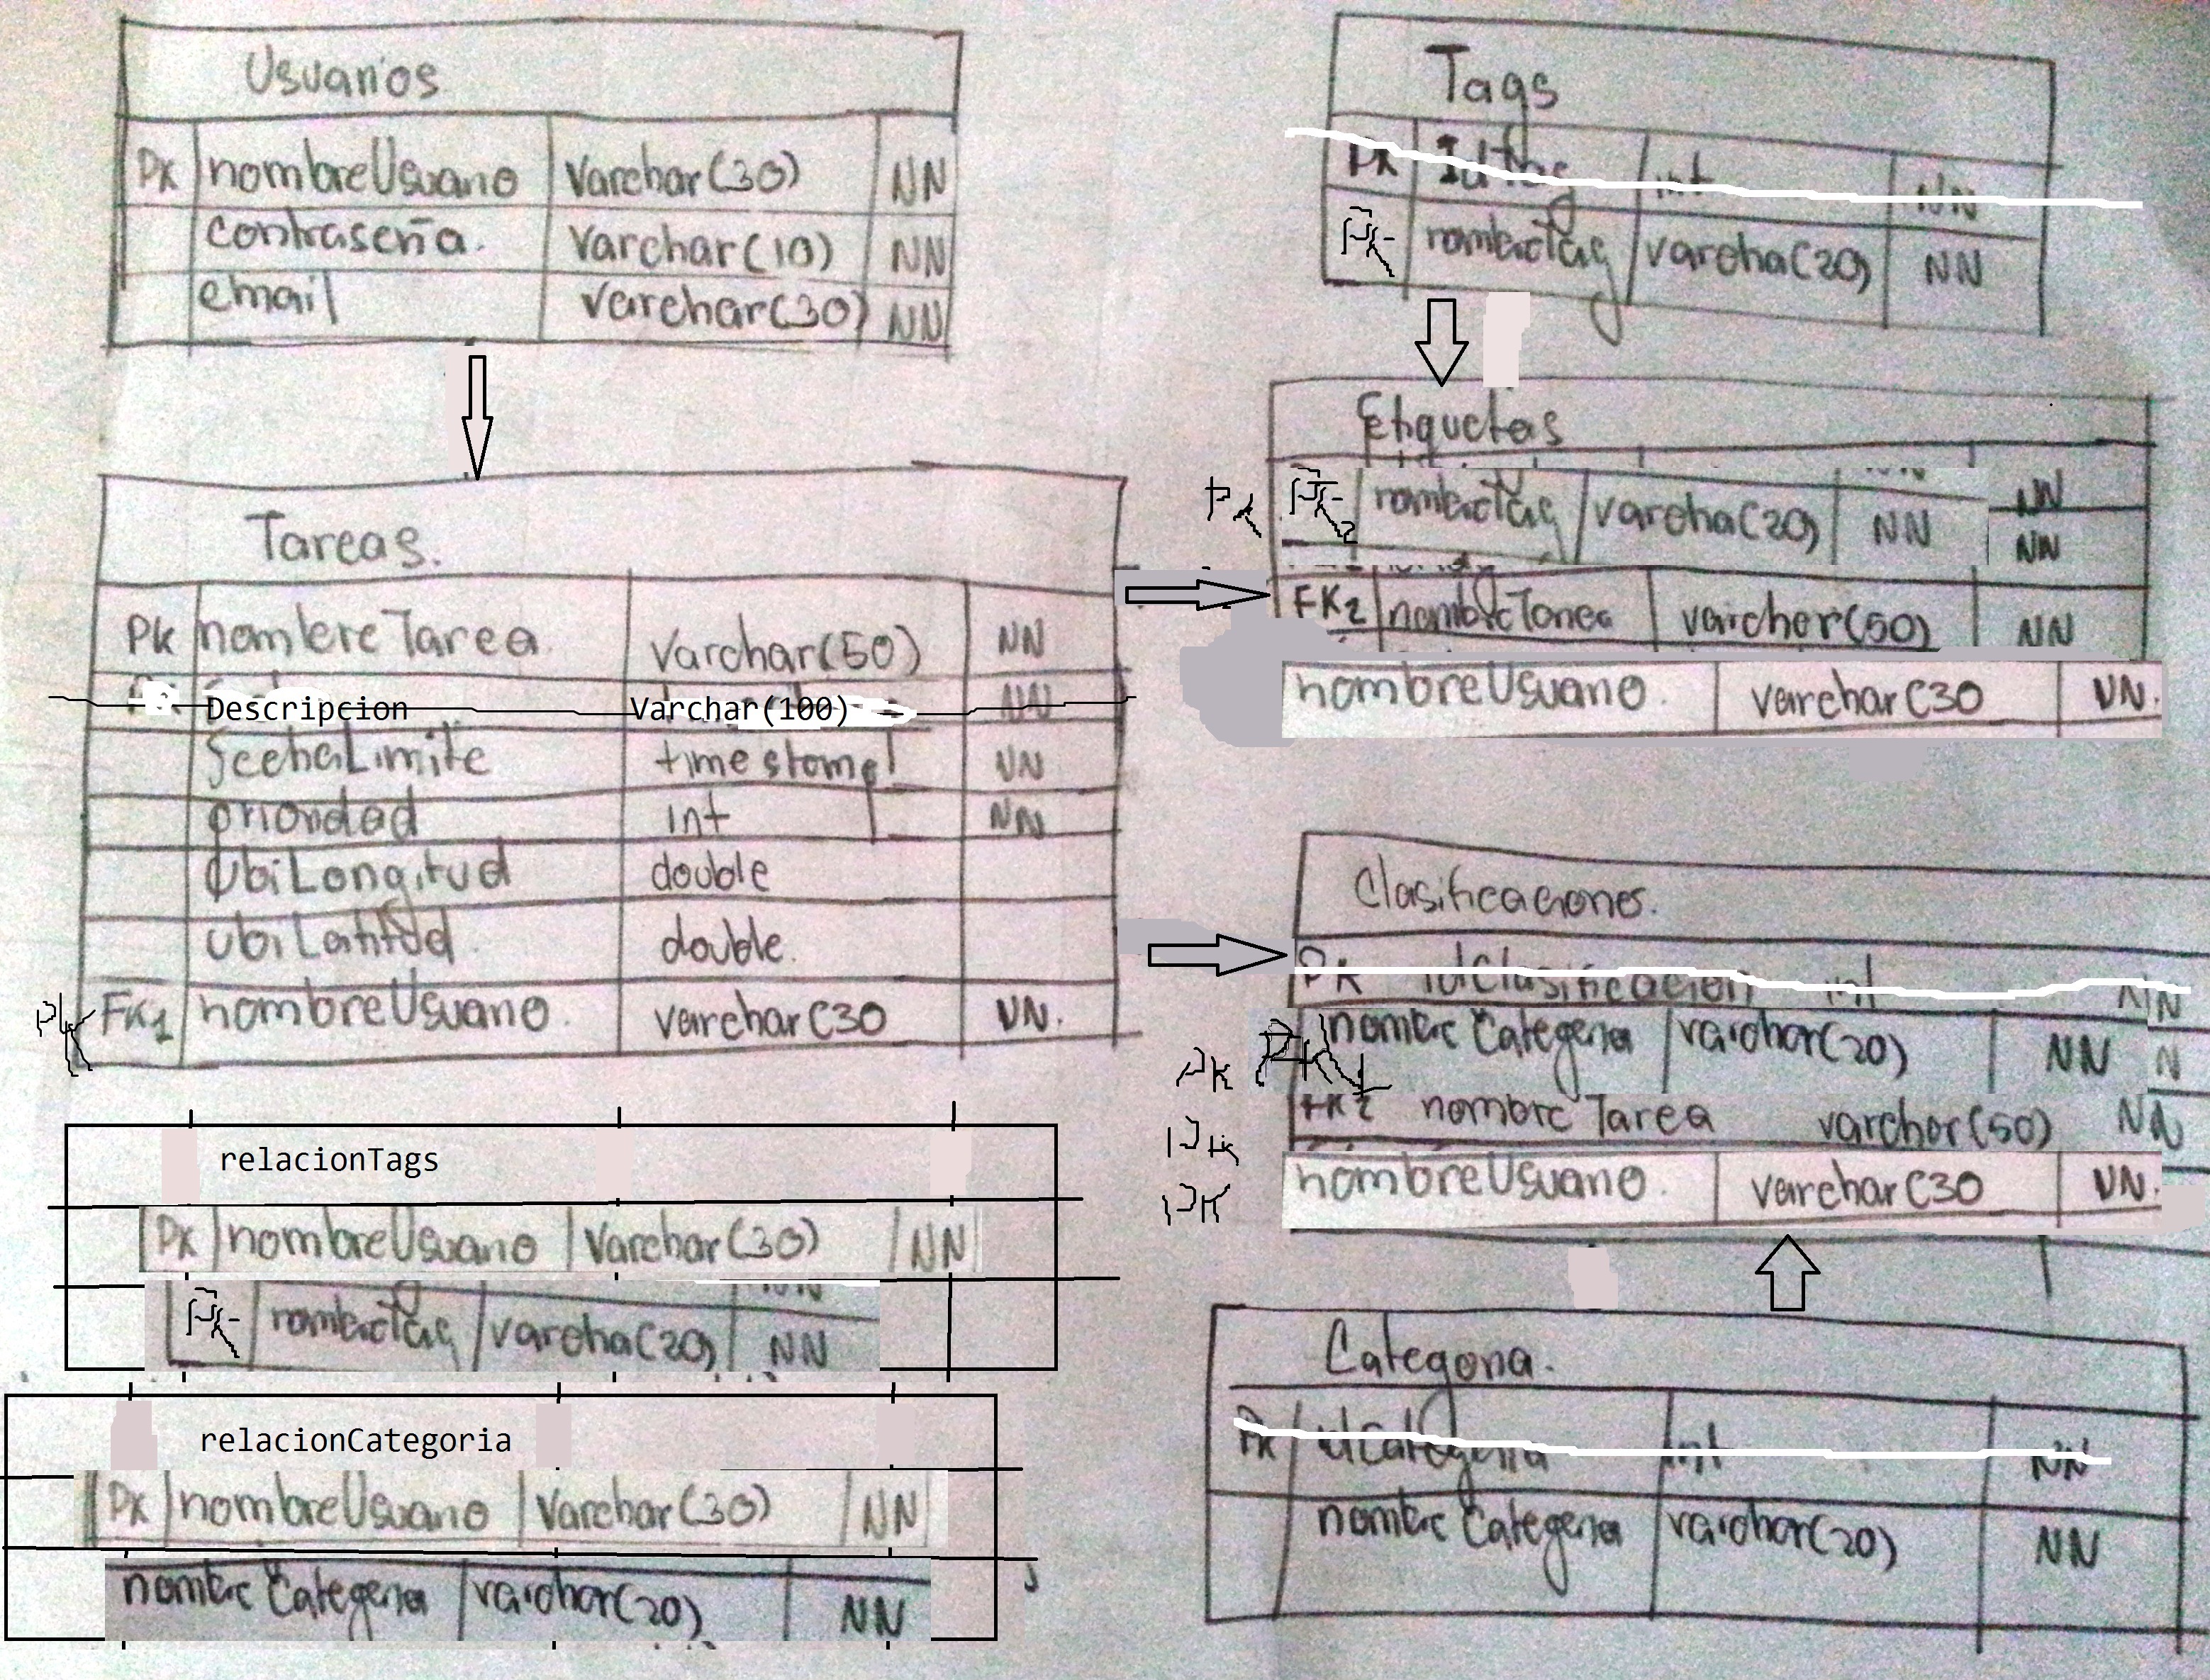 Usuarios
Pk nombreUsuario Varchar(30) NN
contraseña. Varchar(10) NN
email Varchar(30) NN
Tareas.
Pk nombreTarea Varchar(50) NN
Descripcion Varchar(100) NN
fechaLimite timestamp NN
prioridad int NN
UbiLongitud double
ubiLatitud double.
PK FK1 nombreUsuario. varchar(30 NN.
relacionTags
Pk nombreUsuario Varchar(30) NN
PK nombreTag varcha(20) NN
relacionCategoria
Pk nombreUsuario Varchar(30) NN
nombreCategoria varchar(20) NN
Tags
PK IdTag int NN
PK nombreTag varcha(20) NN
Etiquetas
NN
PK FK2 nombreTag varcha(20) NN NN
FK2 nombreTarea varchar(50) NN
nombreUsuario. varchar(30 NN.
Clasificaciones.
PK idClasificacion int NN
PK nombreCategoria varchar(20) NN N
PK FK2 nombreTarea varchar(50) NN
PK nombreUsuario. varchar(30 NN.
Categoria.
PK idCategoria int NN
nombreCategoria varchar(20) NN